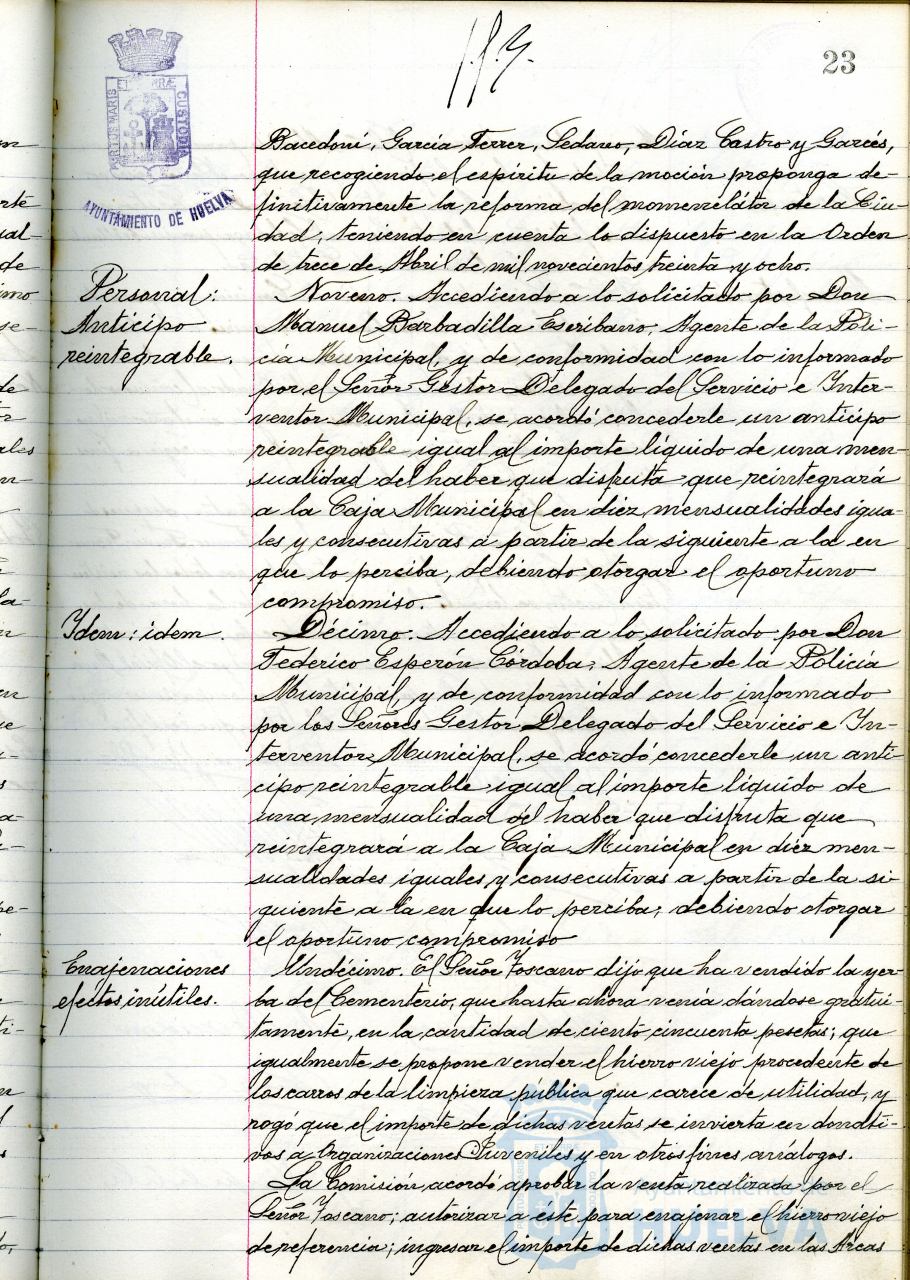 23
PORTUS MARIS ET TERRÆ CUSTODIA
AYUNTAMIENTO DE HUELVA
Bacedoni, García Ferrer, Sedano, Díaz Castro y Garcés,
que recogiendo el espíritu de la moción proponga de-
finitivamente la reforma del nomenclátor de la Ciu-
dad, teniendo en cuenta lo dispuesto en la Orden
de trece de Abril de mil novecientos treinta y ocho.
Personal:
Anticipo
reintegrable.
Noveno. Accediendo a lo solicitado por Don
Manuel Barbadilla Escribano, Agente de la Poli-
cía Municipal, y de conformidad con lo informado
por el Señor Gestor Delegado del Servicio e Inter-
ventor Municipal, se acordó concederle un anticipo
reintegrable igual al importe líquido de una men-
sualidad del haber que disfruta que reintegrará
a la Caja Municipal en diez mensualidades igua-
les y consecutivas a partir de la siguiente a la en
que lo perciba, debiendo otorgar el oportuno
compromiso.
Idem: idem.
Décimo. Accediendo a lo solicitado por Don
Federico Esperón Córdoba, Agente de la Policía
Municipal, y de conformidad con lo informado
por los Señores Gestor Delegado del Servicio e In-
terventor Municipal, se acordó concederle un anti-
cipo reintegrable igual al importe líquido de
una mensualidad del haber que disfruta que
reintegrará a la Caja Municipal en diez men-
sualidades iguales y consecutivas a partir de la si-
guiente a la en que lo perciba, debiendo otorgar
el oportuno compromiso
Enajenaciones
efectos inútiles.
Undécimo. El Señor Toscano dijo que ha vendido la yer-
ba del Cementerio, que hasta ahora venía dándose gratui-
tamente, en la cantidad de ciento cincuenta pesetas; que
igualmente se propone vender el hierro viejo procedente de
los carros de la limpieza pública que carece de utilidad, y
rogó que el importe de dichas ventas se invierta en donati-
vos a Organizaciones Juveniles y en otros fines análogos.
La Comisión acordó aprobar la venta realizada por el
Señor Toscano; autorizar a éste para enajenar el hierro viejo
de referencia; ingresar el importe de dichas ventas en las Arcas
Ayuntamiento de
HUELVA